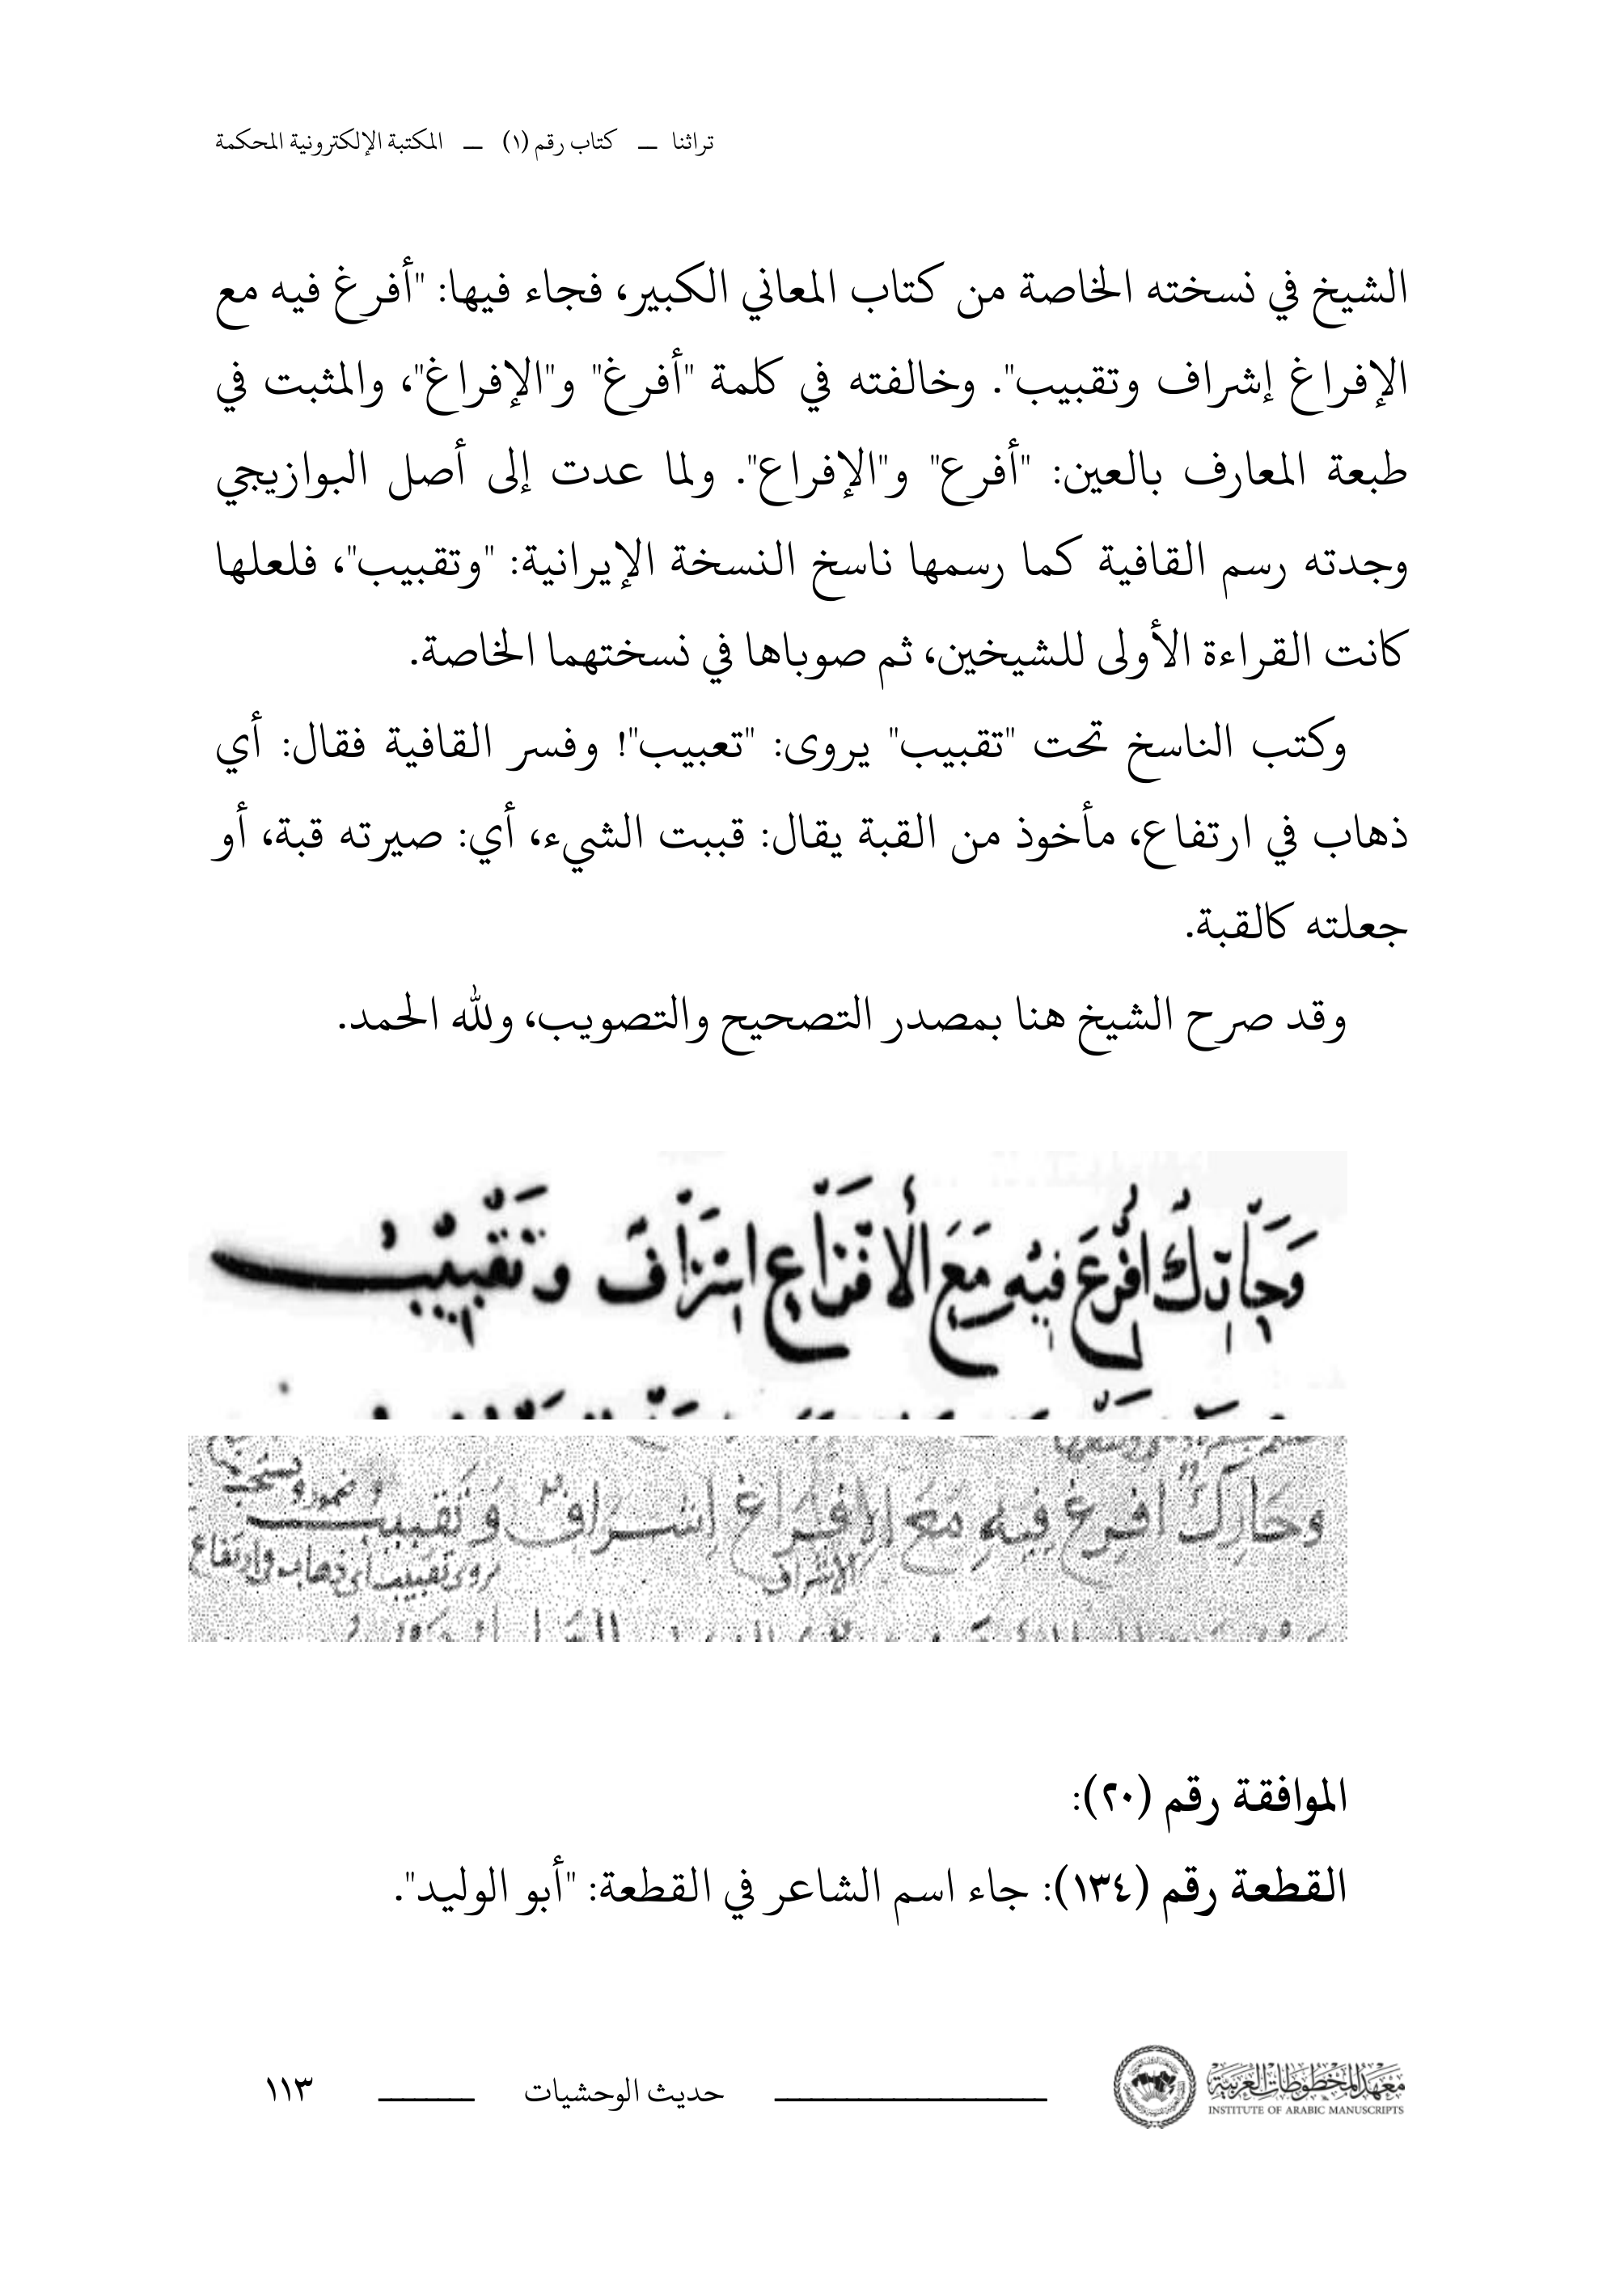 تراثنا ــ كتاب رقم (١) ــ المكتبة الإلكترونية المحكمة
الشيخ في نسخته الخاصة من كتاب المعاني الكبير، فجاء فيها: "أفرغ فيه مع
الإفراغ إشراف وتقبيب". وخالفته في كلمة "أفرغ" و"الإفراغ"، والمثبت في
طبعة المعارف بالعين: "أفرع" و"الإفراع". ولما عدت إلى أصل البوازيجي
وجدته رسم القافية كما رسمها ناسخ النسخة الإيرانية: "وتقبيب"، فلعلها
كانت القراءة الأولى للشيخين، ثم صوباها في نسختهما الخاصة.
وكتب الناسخ تحت "تقبيب" يروى: "تعبيب"! وفسر القافية فقال: أي
ذهاب في ارتفاع، مأخوذ من القبة يقال: قببت الشيء، أي: صيرته قبة، أو
جعلته كالقبة.
وقد صرح الشيخ هنا بمصدر التصحيح والتصويب، ولله الحمد.
أفرع فيه مع الافراع وتقبيب
وحارك افرغ فيه مع الافراغ إشراف وتقبيب
الاشراف
يروى تقبيب أي ذهاب في ارتفاع
الموافقة رقم (٢٠):
القطعة رقم (١٣٤): جاء اسم الشاعر في القطعة: "أبو الوليد".
معهد المخطوطات العربية
INSTITUTE OF ARABIC MANUSCRIPTS
حديث الوحشيات
١١٣